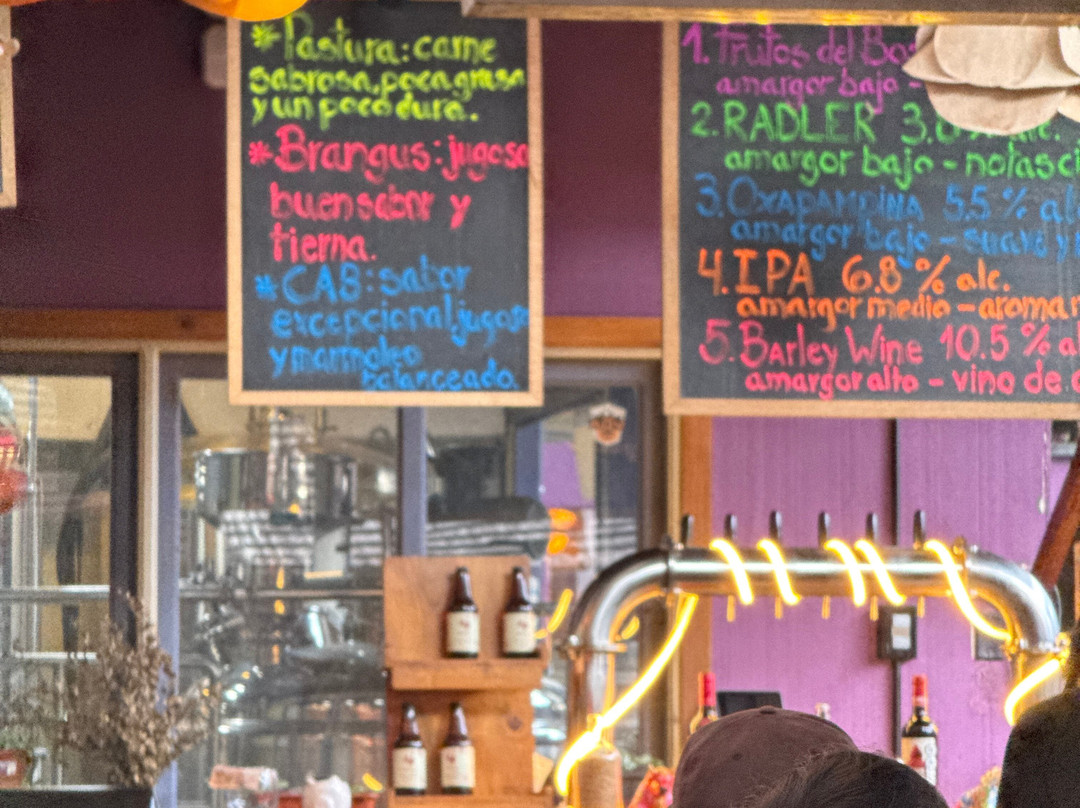 *Pastura: carne
sabrosa, poca grasa
y un poco dura.
*Brangus: jugosa
buen sabor y
tierna.
*CAB: sabor
excepcional, jugoso
y marmoleo
balanceado.
1. Frutos del Bos
amargor bajo -
2. RADLER 3.0 % alc.
amargor bajo - notas ci
3. OXAPAMPINA 5.5 % al
amargor bajo - suave y
4. IPA 6.8 % alc.
amargor medio - aroma
5. BARLEY WINE 10.5 % a
amargor alto - vino de